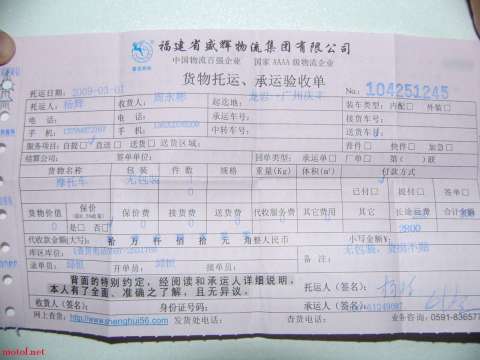 福建省盛辉物流集团有限公司
中国物流百强企业 国家AAAA级物流企业
货物托运、承运验收单
托运日期: 2009-03-01 No: 104251245
托运人: 收货人: 起讫地: 龙岩--广州 装车类型: 内配□ 外装□
电话: 电话: 承运车号: 接货车号:
手机: 手机: 中转车号: 送货车号:
服务项目: 自提 直送 送货 送货区域: 普件□ 快件□ 加急□
结算公司: 签单单位: 回单类型: 承运单□ 厂单□ 第( )联
货物名称 包装 件数 规格 重量(Kg) 体积(m³) 付款方式
摩托车 无包装 已付□ 提付□ 签单□
货物价值 保价 保价费 接货费 送货费 代收服务费 其它费用 长途运费 合计金额
0 是□ 否□ 0 0 0 0 0 2800
代收款金额(大写): 拾 万 仟 佰 拾 元 角整人民币 小写金额¥:
库区库位: 备注: 无包装,
录单员: 开单员: 司磅员:
背面的特别约定,经阅读和承运人详细说明,
本人有了全面、准确之了解,且无异议。
托运人(签名):
收货人(签名): 身份证号码: 承运人(签名):
网上查询: http://www.shenghui56.com 发货处电话: 查货电话: 业务咨询: 0591-836577
motol.net